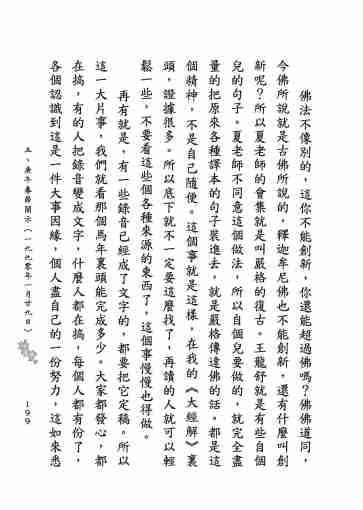 佛法不像別的，這你不能創新，你還能超過佛嗎？佛佛道同，
今佛所說就是古佛所說的，釋迦牟尼佛也不能創新，還有什麼叫創
新呢？所以夏老師的會集就是叫嚴格的復古。王龍舒就是有些自個
兒的句子。夏老師不同意這個做法，所以自個兒要做的，就完全盡
量的把原來各種譯本的句子裝進去，就是嚴格傳達佛的話。都是這
個精神，不是自己隨便。這個事就是這樣，在我的《大經解》裏
頭，證據很多。所以底下就不一定要這麼找了，再讀的人就可以輕
鬆一些，不要看這些個各種來源的東西了，這個事慢慢也得做。
再有就是，有一些錄音已經成了文字的，都要把它定稿。所以
這一大片事，我們就看那個馬年裏頭能完成多少。大家都發心，都
在搞，有的人把錄音變成文字，什麼人都在搞，每個人都有份了，
各個認識到這是一件大事因緣，個人盡自己的一份努力，這如來悉
五、庚午春節開示（一九九零年一月廿九日）
199